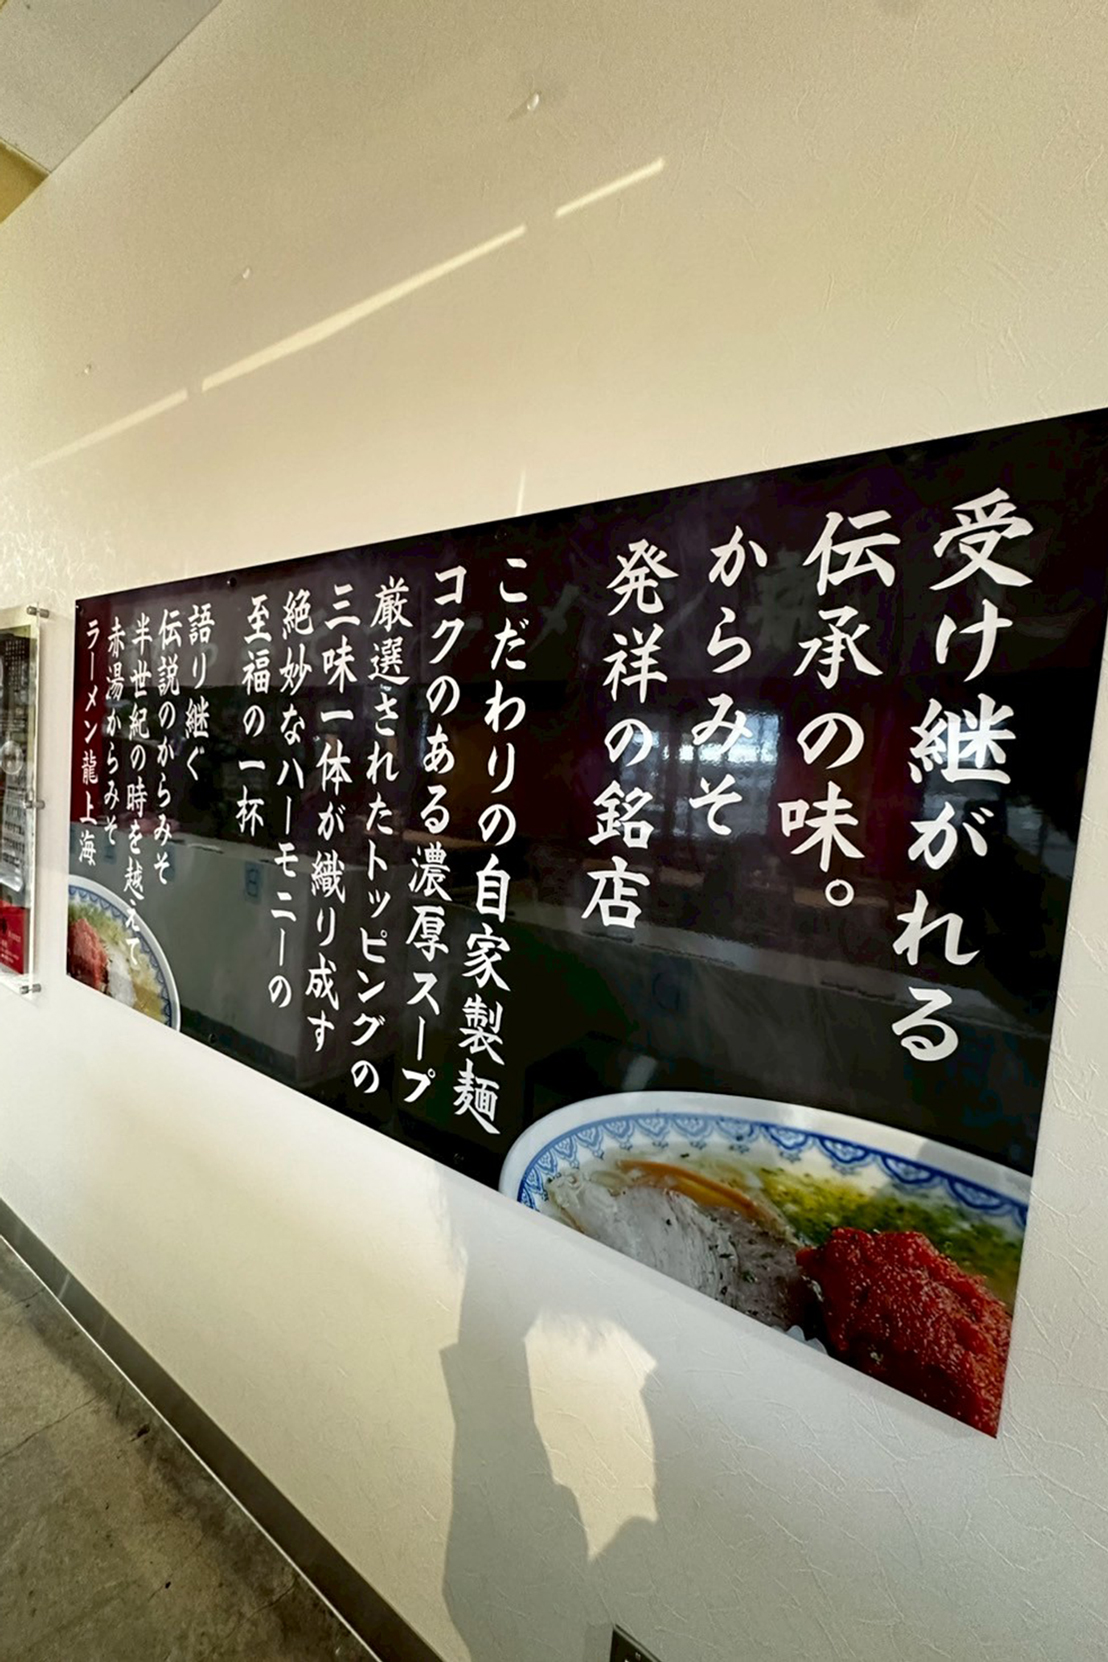 受け継がれる
伝承の味。
からみそ
発祥の銘店
こだわりの自家製麺
コクのある濃厚スープ
厳選されたトッピングの
三味一体が織り成す
絶妙なハーモニーの
至福の一杯
語り継ぐ
伝説のからみそ
半世紀の時を越えて
赤湯からみそ
ラーメン龍上海